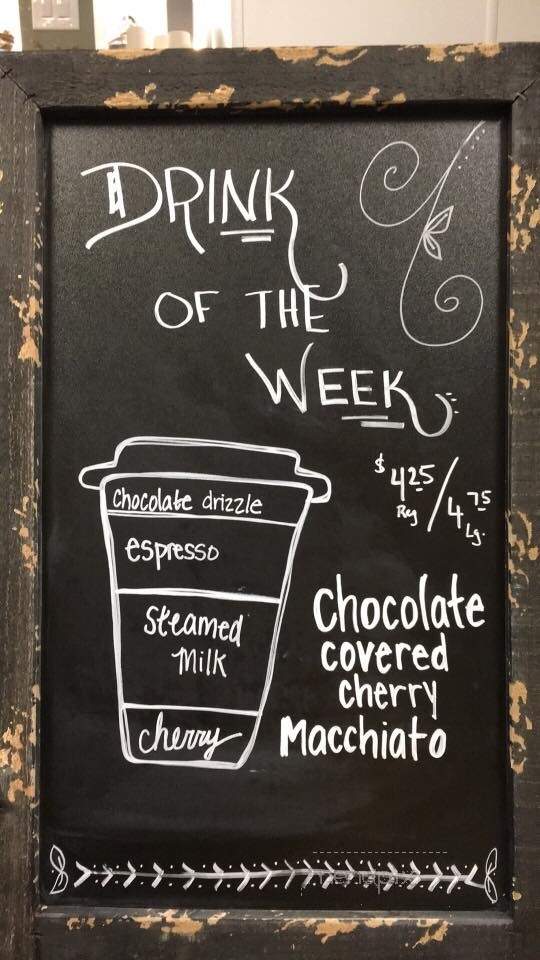 DRINK
OF THE
WEEK
$4.25/4.75
Reg Lg.
chocolate drizzle
espresso
Steamed
Milk
cherry
Chocolate
covered
cherry
Macchiato